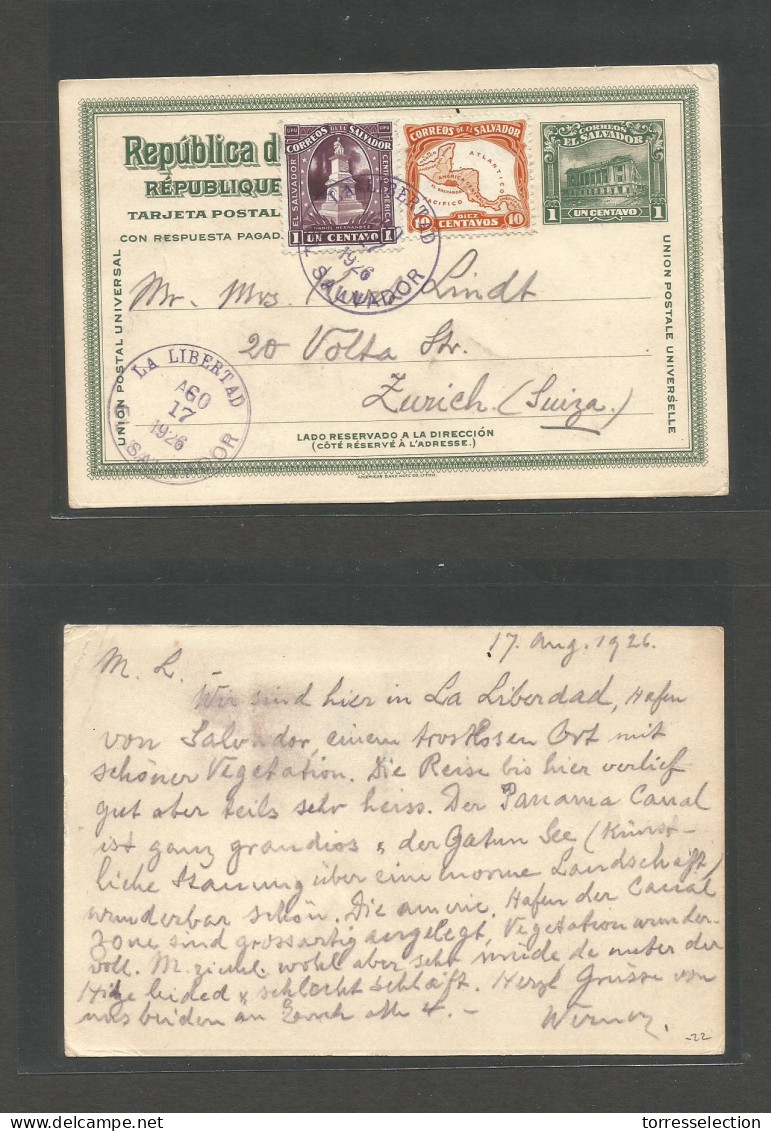 República d
RÉPUBLIQUE
TARJETA POSTAL
CON RESPUESTA PAGAD
UPU CORREOS DE EL SALVADOR UPU
EL SALVADOR
CENTROAMERICA
DANIEL HERNANDEZ
1 UN CENTAVO 1
CORREOS DE EL SALVADOR
ATLANTICO
AMERICA CENTRAL
EL SALVADOR
PACIFICO
10 DIEZ CENTAVOS 10
CORREOS
EL SALVADOR
1 UN CENTAVO 1
LA LIBERTAD
1926
SALVADOR
Mr. Mrs. Lindt
20 Volta Str.
Zurich. (Suiza.)
LA LIBERTAD
AGO
17
1926
SALVADOR
UNION POSTAL UNIVERSAL
UNION POSTALE UNIVERSELLE
LADO RESERVADO A LA DIRECCIÓN
(CÔTÉ RÉSERVÉ À L'ADRESSE.)
AMERICAN BANK NOTE CO. LITHO.
17. Aug. 1926.
M. L.
Wir sind hier in La Liberdad, Hafen
von Salvador, einem trostlosen Ort mit
schöner Vegetation. Die Reise bis hier verlief
gut aber teils sehr heiss. Der Panama Canal
ist ganz grandios & der Gatun See (Künst-
liche Stauung über eine enorme Landschaft)
wunderbar schön. Die americ. Hafen der Canal
zone sind grossartig angelegt, Vegetation wunder-
voll. M. wohl aber sehr müde da unter der
Hitze leided & schlecht schläft. Herzl Grüsse von
uns beiden an Euch alle 4. -
Werner.
-22
torresselection